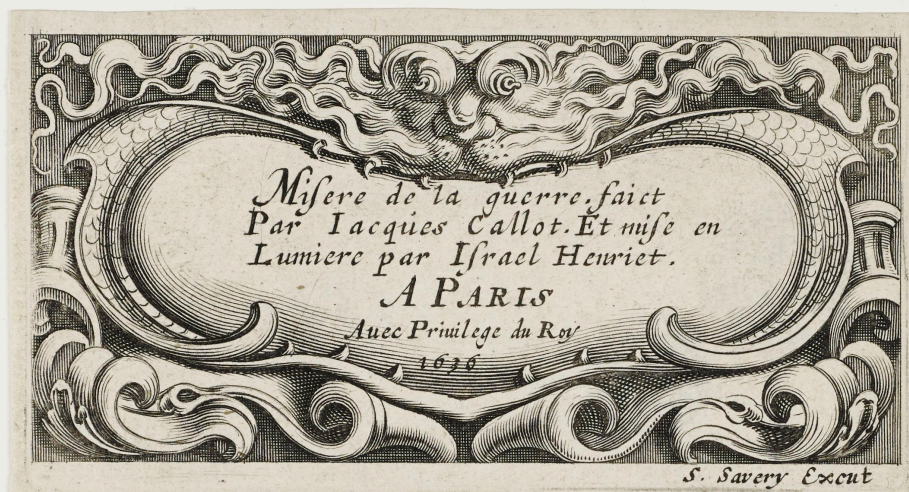 Miſere de la guerre. faict
Par Iacques Callot. Et miſe en
Lumiere par Iſrael Henriet.
A PARIS
Auec Priuilege du Roy
1636
S. Savery Excut